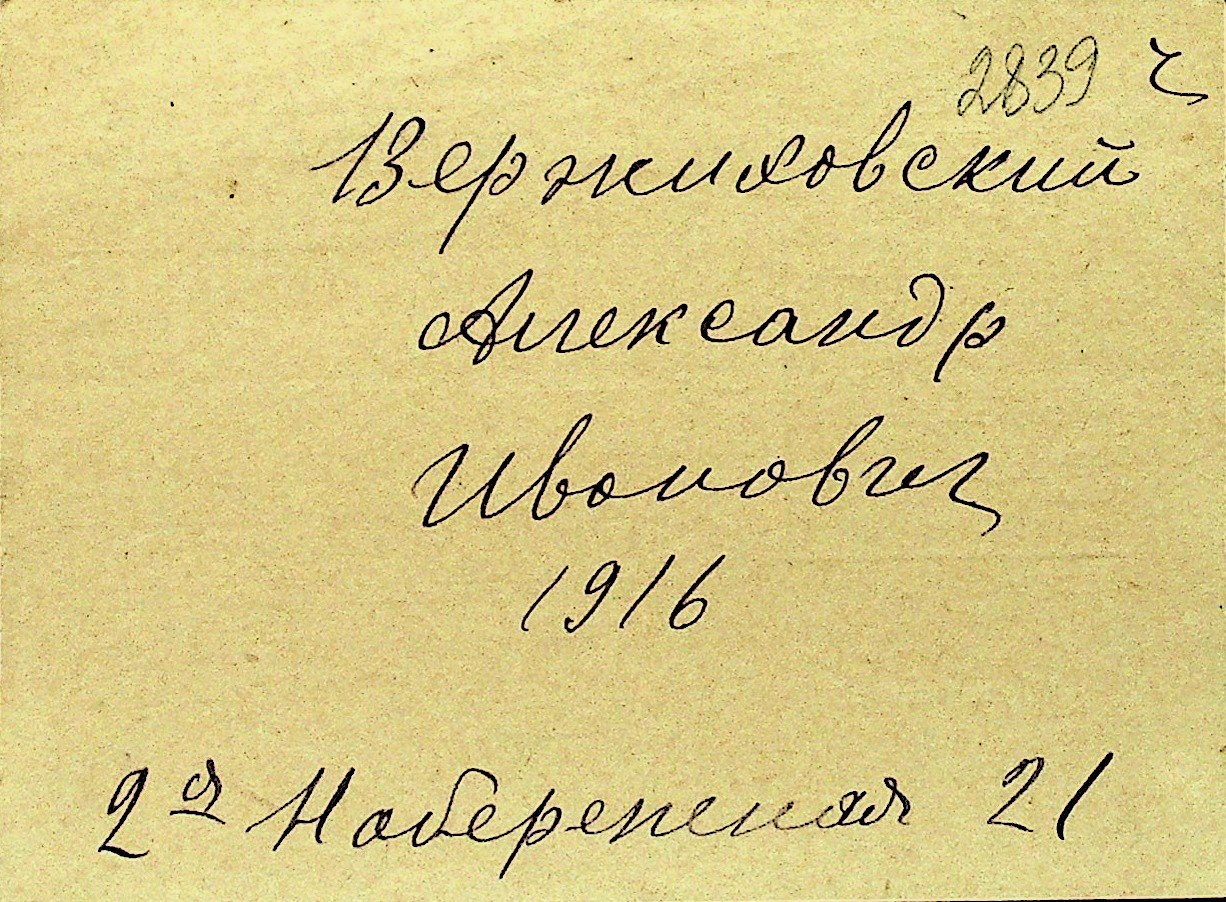 2839 ч
Вержиховский
Александр
Иванович
1916
2я Набережная 21